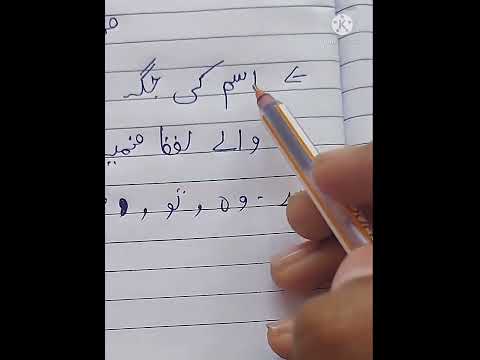 اسم کی جگہ
والے لفظ ضمیر
وہ , تو ,